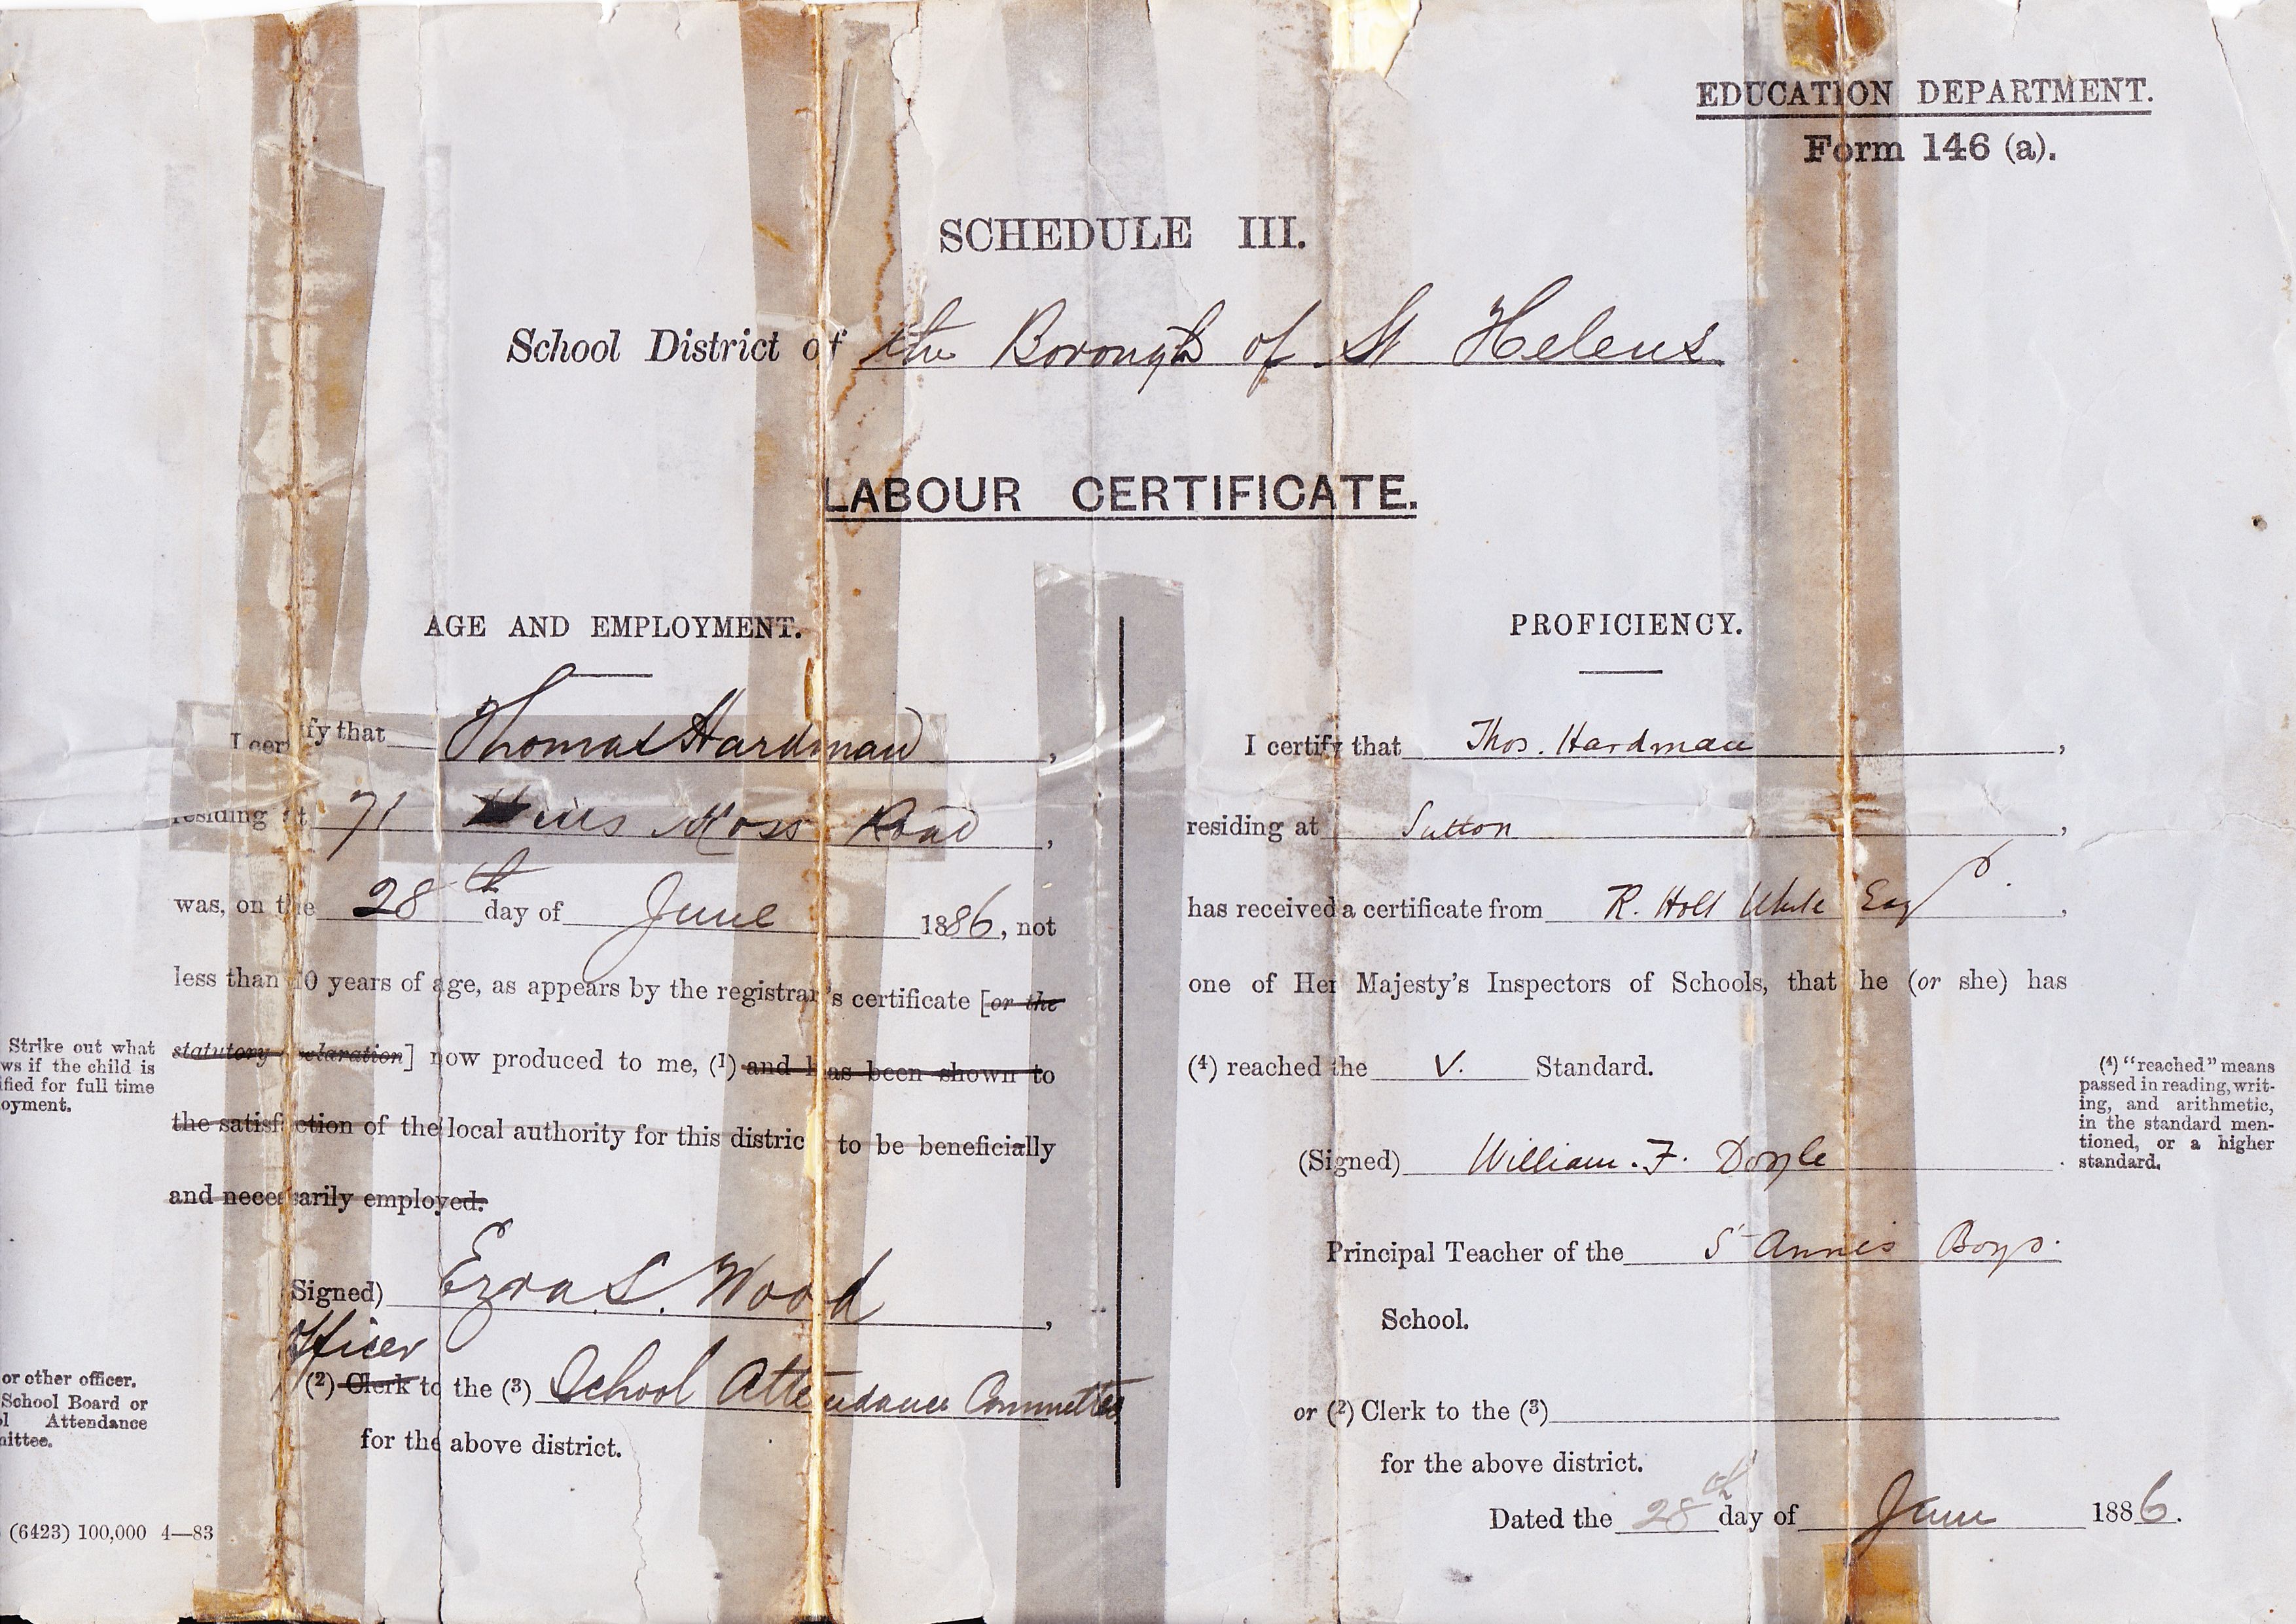 EDUCATION DEPARTMENT.
Form 146 (a).
SCHEDULE III.
School District of the Borough of St Helens
LABOUR CERTIFICATE.
AGE AND EMPLOYMENT.
I certify that Thomas Hardman,
residing at 71 Moss Road,
was, on the 28th day of June 1886, not
less than 10 years of age, as appears by the registrar's certificate [or the
statutory declaration] now produced to me, (1) and has been shown to
the satisfaction of the local authority for this district to be beneficially
and necessarily employed.
(Signed) Ezra S. Wood,
Officer
(2) Clerk to the (3) School Attendance Committee
for the above district.
Strike out what
ws if the child is
ified for full time
oyment.
or other officer.
School Board or
l Attendance
mittee.
(6423) 100,000 4—83
PROFICIENCY.
I certify that Thos. Hardman,
residing at Sutton,
has received a certificate from R. Holt White Esqr.,
one of Her Majesty's Inspectors of Schools, that he (or she) has
(4) reached the V. Standard.
(Signed) William. F. Doyle.
Principal Teacher of the St Annes Boys.
School.
or (2) Clerk to the (3)
for the above district.
Dated the 28th day of June 1886.
(4) "reached" means
passed in reading, writ-
ing, and arithmetic,
in the standard men-
tioned, or a higher
standard.